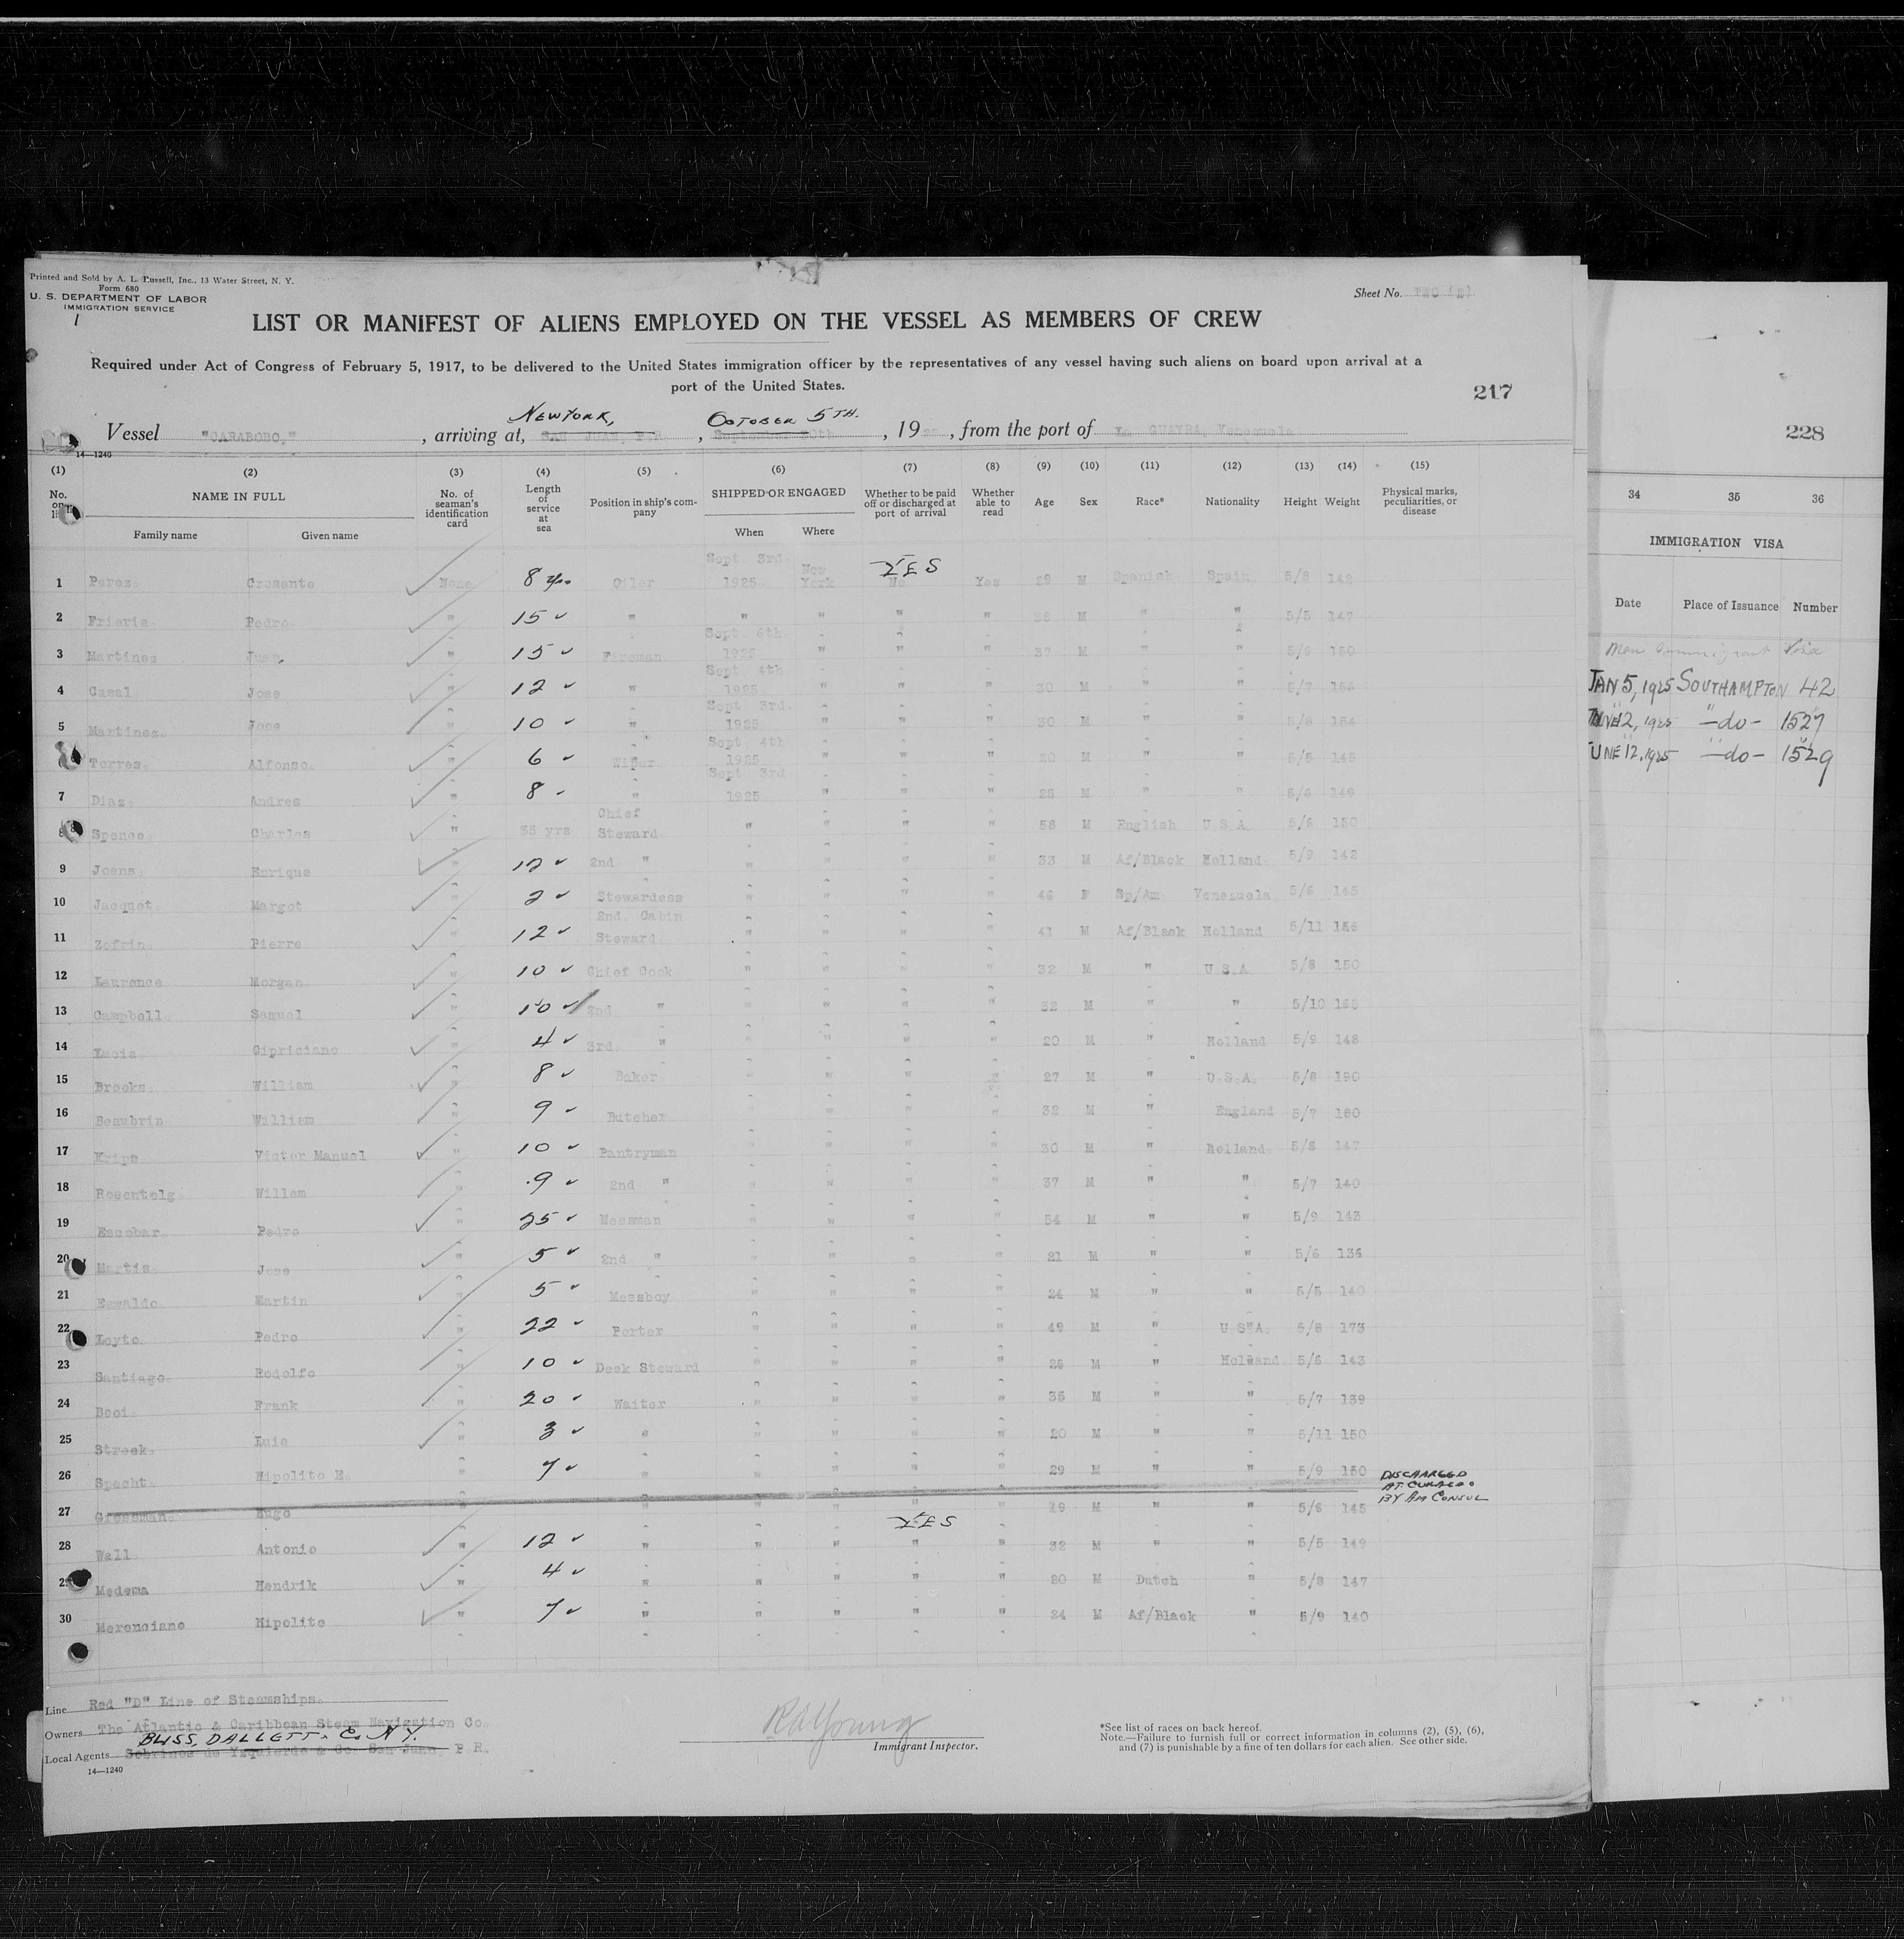 Printed and Sold by A. L. Russell, Inc., 13 Water Street, N. Y.
Form 680
U. S. DEPARTMENT OF LABOR
IMMIGRATION SERVICE
Sheet No. TWO (2)
LIST OR MANIFEST OF ALIENS EMPLOYED ON THE VESSEL AS MEMBERS OF CREW
Required under Act of Congress of February 5, 1917, to be delivered to the United States immigration officer by the representatives of any vessel having such aliens on board upon arrival at a
port of the United States.
217
NEW YORK, OCTOBER 5TH.
Vessel "CARABOBO," , arriving at, SAN JUAN, P.R. , September 30th , 1925 , from the port of La GUAYRA, Venezuela
14—1240
(1) (2) (3) (4) (5) (6) (7) (8) (9) (10) (11) (12) (13) (14) (15)
No. on list NAME IN FULL Family name Given name No. of seaman's identification card Length of service at sea Position in ship's company SHIPPED OR ENGAGED When Where Whether to be paid off or discharged at port of arrival Whether able to read Age Sex Race* Nationality Height Weight Physical marks, peculiarities, or disease
1 Perez Crosante None 8 yrs Oiler Sept. 3rd. 1925 New York YES No Yes 29 M Spanish Spain 5/8 142
2 Frieria Pedro " 15 " " " " " 38 M " " 5/5 147
3 Martines Juan " 15 Fireman Sept. 6th 1925 " " " 37 M " " 5/6 150
4 Casal Jose " 12 " Sept. 4th 1925 " " " 30 M " " 5/7
5 Martines Jose " 10 " Sept. 3rd. 1925 " " " 30 M " " 5/8 154
6 Torres Alfonso " 6 Wiper Sept. 4th 1925 " " " 20 M " " 5/5 145
7 Diaz Andres " 8 " Sept 3rd 1925 " " " 28 M " " 5/6 149
8 Spence Charles " 35 yrs Chief Steward " " " " 58 M English U S A 5/8 150
9 Joens Enrique " 12 2nd " " " " " 33 M Af/Black Holland 5/9 142
10 Jacquot Margot " 2 Stewardess " " " " 46 F Sp/Am Venezuela 5/6 145
11 Zefrin Pierre " 12 2nd. Cabin Steward " " " " 41 M Af/Black Holland 5/11 156
12 Laurence Morgan " 10 Chief Cook " " " " 32 M " U.S.A 5/8 150
13 Campbell Samuel " 10 2nd " " " " " 32 M " " 5/10 165
14 Lucia Cipriciano " 4 3rd. " " " " " 20 M " Holland 5/9 148
15 Brooks William " 8 Baker " " " " 27 M " U.S.A. 5/8 190
16 Beaubrin William " 9 Butcher " " " " 32 M " England 5/7 160
17 Krips Victor Manuel " 10 Pantryman " " " " 30 M " Holland 5/8 147
18 Rosentelg Willem " 9 2nd " " " " " 37 M " " 5/7 140
19 Escobar Pedro " 25 Messman " " " " 54 M " " 5/9 143
20 Martis Jose " 5 2nd " " " " " 21 M " " 5/6 136
21 Eswaldo Martin " 5 Messboy " " " " 24 M " " 5/5 140
22 Loyto Pedro " 22 Porter " " " " 49 M " U S A. 5/8 173
23 Santiago Rodolfo " 10 Deck Steward " " " " 26 M " Holland 5/6 143
24 Beci Frank " 20 Waiter " " " " 35 M " " 5/7 139
25 Streek Luis " 3 " " " " " 20 M " " 5/11 150
26 Specht Hipolito E. " 7 " " " " " 29 M " " 5/9 150
DISCHARGED
AT CURACAO
BY AM CONSUL
27 Grossman Hugo " " " " " " 19 M " " 5/6 145
YES
28 Wall Antonio " 12 " " " " " 32 M " " 5/5 149
29 Medema Hendrik " 4 " " " " " 20 M Dutch " 5/8 147
30 Merenciano Hipolito " 7 " " " " " 24 M Af/Black " 5/9 140
Line Red "D" Line of Steamships.
Owners The Atlantic & Caribbean Steam Navigation Co.
BLISS, DALLETT & Co. N.Y.
Local Agents Sobrinos de Yzquierdo & Co. San Juan, P.R.
14—1240
R A Young
Immigrant Inspector.
*See list of races on back hereof.
Note.—Failure to furnish full or correct information in columns (2), (5), (6),
and (7) is punishable by a fine of ten dollars for each alien. See other side.
228
34 35 36
IMMIGRATION VISA
Date Place of Issuance Number
Non Immigrant Visa
JAN 5, 1925 SOUTHAMPTON 42
JUNE 12, 1925 —do— 1527
JUNE 12, 1925 —do— 1529